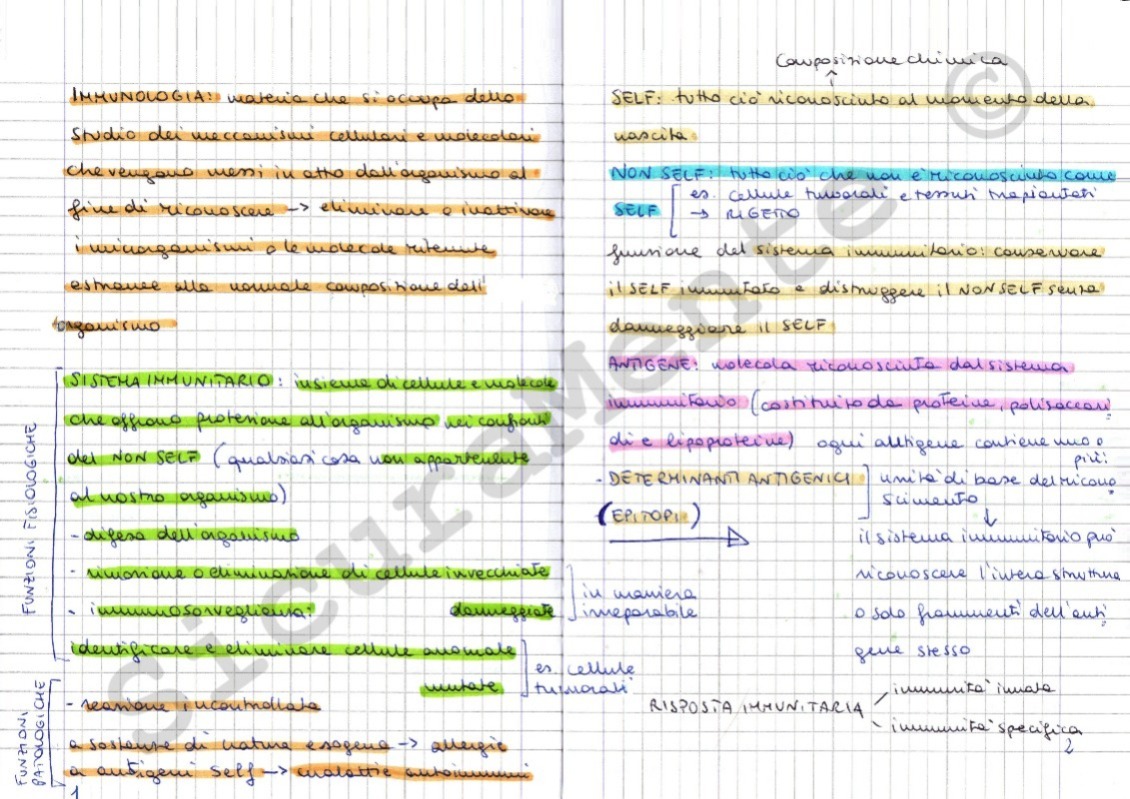 IMMUNOLOGIA: materia che si occupa dello
studio dei meccanismi cellulari e molecolari
che vengono messi in atto dall'organismo al
fine di riconoscere -> eliminare o inattivare
i microrganismi o le molecole ritenute
estranee alla normale composizione dell'
organismo
FUNZIONI FISIOLOGICHE
SISTEMA IMMUNITARIO: insieme di cellule e molecole
che offrono protezione all'organismo nei confronti
del NON SELF (qualsiasi cosa non appartenente
al nostro organismo)
- difesa dell'organismo
- rimozione o eliminazione di cellule invecchiate
danneggiate
in maniera
irreparabile
- immunosorveglianza:
identificare e eliminare cellule anomale
mutate
es. cellule
tumorali
FUNZIONI
PATOLOGICHE
- reazione incontrollata
a sostanze di natura esogena -> allergie
a antigeni self -> malattie autoimmuni
1
composizione chimica
SELF: tutto ciò riconosciuto al momento della
nascita
NON SELF: tutto ciò che non è riconosciuto come
SELF
es. cellule tumorali e tessuti trapiantati
-> RIGETTO
funzione del sistema immunitario: conservare
il SELF immutato e distruggere il NON SELF senza
danneggiare il SELF
ANTIGENE: molecola riconosciuta dal sistema
immunitario (costituito da proteine, polisaccari
di e lipoproteine) ogni antigene contiene uno o
più:
- DETERMINANTI ANTIGENICI
(EPITOPI)
unità di base del ricono
scimento
↓
il sistema immunitario può
riconoscere l'intera struttura
o solo frammenti dell'anti
gene stesso
RISPOSTA IMMUNITARIA
immunità innata
immunità specifica
2
SicuraMente ©